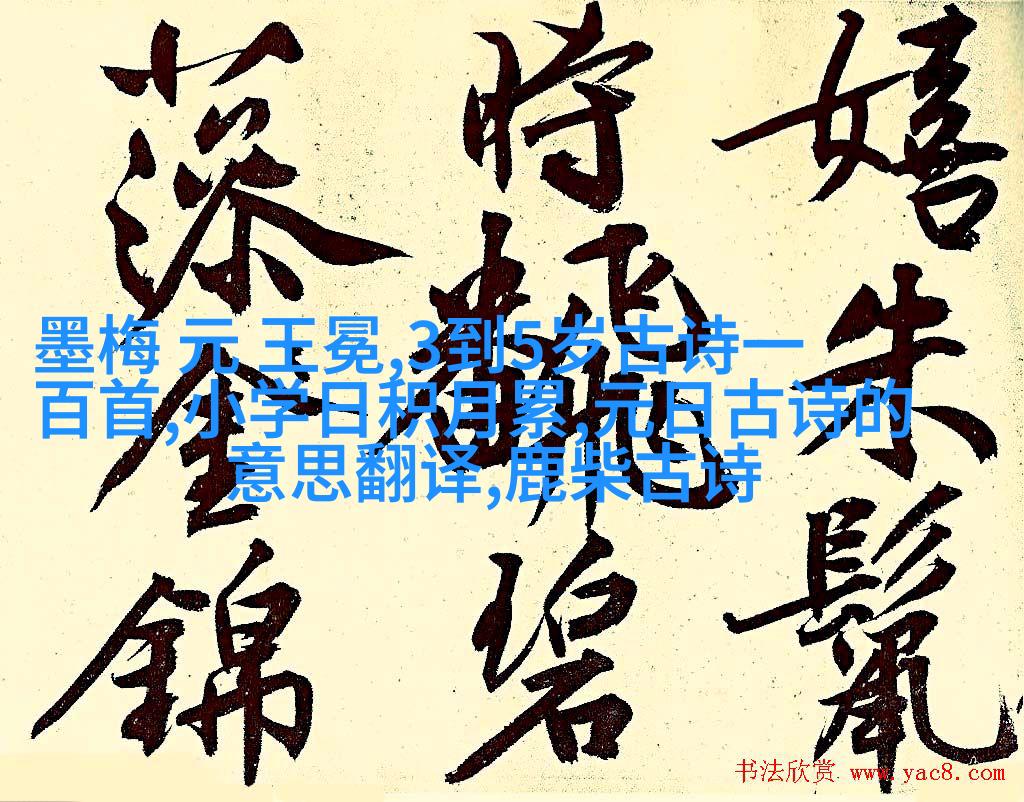 嬉朱鬣
時飜碧
金錦
墨梅 元 王冕,3到5岁古诗一
百首,小学日积月累,元日古诗的
意思翻译,鹿柴古诗
书法欣赏 www.yac8.com